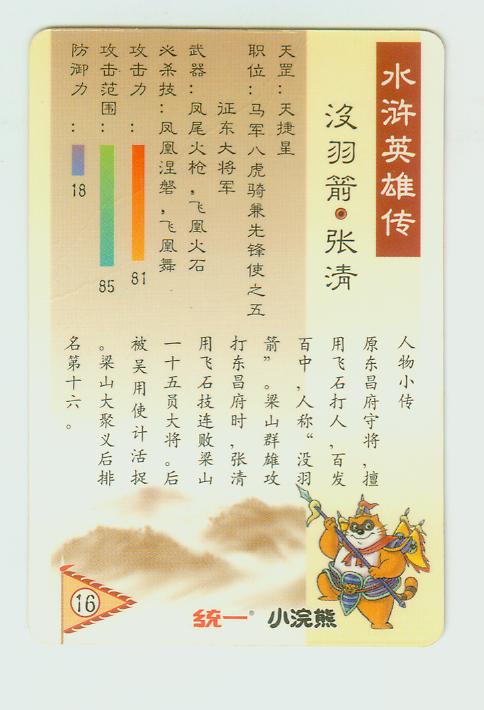 水浒英雄传
没羽箭·张清
天罡:天捷星
职位:马军八虎骑兼先锋使之五
征东大将军
武器:凤尾火枪,飞凰火石
必杀技:凤凰涅磐,飞凰舞
攻击力: 81
攻击范围: 85
防御力: 18
人物小传
原东昌府守将,擅
用飞石打人,百发
百中,人称“没羽
箭”。梁山群雄攻
打东昌府时,张清
用飞石技连败梁山
一十五员大将。后
被吴用使计活捉
。梁山大聚义后排
名第十六。
16
统一® 小浣熊